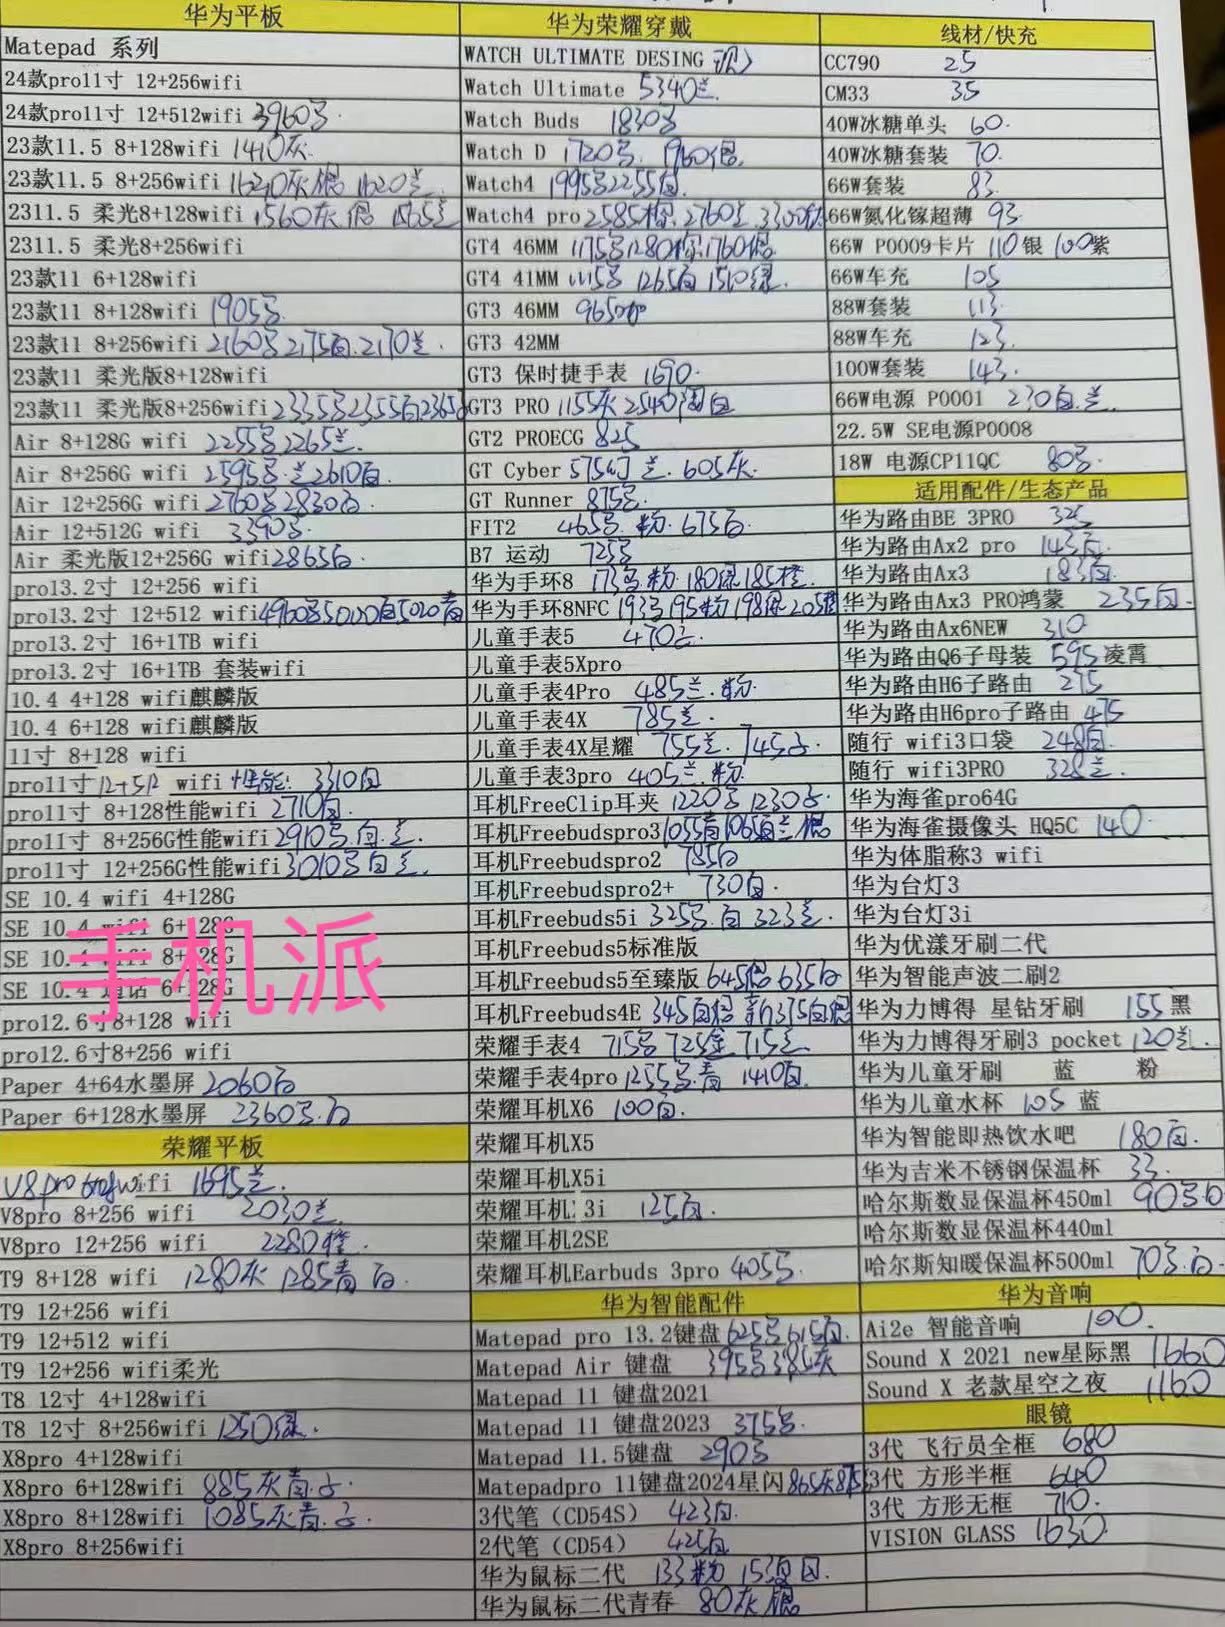 华为平板
Matepad 系列
24款pro11寸 12+256wifi
24款pro11寸 12+512wifi 3960
23款11.5 8+128wifi 1410灰
23款11.5 8+256wifi 1620灰 银 1620兰
2311.5 柔光8+128wifi 1560灰 银
2311.5 柔光8+256wifi
23款11 6+128wifi
23款11 8+128wifi 1905
23款11 8+256wifi 2160 2175白 2170兰
23款11 柔光版8+128wifi
23款11 柔光版8+256wifi 2335 2355白 2365
Air 8+128G wifi 2255 2265兰
Air 8+256G wifi 2595 兰 2610白
Air 12+256G wifi 2760 2830白
Air 12+512G wifi 3390
Air 柔光版12+256G wifi 2865白
pro13.2寸 12+256 wifi
pro13.2寸 12+512 wifi 4960 5000白 5020青
pro13.2寸 16+1TB wifi
pro13.2寸 16+1TB 套装wifi
10.4 4+128 wifi麒麟版
10.4 6+128 wifi麒麟版
11寸 8+128 wifi
pro11寸 12+512 wifi 性能 3310白
pro11寸 8+128性能wifi 2710白
pro11寸 8+256G性能wifi 2910 白 兰
pro11寸 12+256G性能wifi 3010 白 兰
SE 10.4 wifi 4+128G
SE 10.4 wifi 6+128G
SE 10.4 wifi 8+128G
SE 10.4 通话 6+128G
手机派
pro12.6寸8+128 wifi
pro12.6寸8+256 wifi
Paper 4+64水墨屏 2060白
Paper 6+128水墨屏 2360 白
荣耀平板
V8pro wifi 1695兰
V8pro 8+256 wifi 2030兰
V8pro 12+256 wifi 2280橙
T9 8+128 wifi 1280灰 1285青 白
T9 12+256 wifi
T9 12+512 wifi
T9 12+256 wifi柔光
T8 12寸 4+128wifi
T8 12寸 8+256wifi 1250绿
X8pro 4+128wifi
X8pro 6+128wifi 885灰青
X8pro 8+128wifi 1085灰青
X8pro 8+256wifi
华为荣耀穿戴
WATCH ULTIMATE DESING
Watch Ultimate 5340兰
Watch Buds 1830
Watch D 1720 1960银
Watch4 1995 2255白
Watch4 pro 2585棕 2760兰 3300钛
GT4 46MM 1175 1280棕 1760银
GT4 41MM 1115 1265白 1510绿
GT3 46MM 965
GT3 42MM
GT3 保时捷手表 1690
GT3 PRO 1155灰 2540陶白
GT2 PROECG 825
GT Cyber 575幻兰 605灰
GT Runner 875
FIT2 465 粉 675白
B7 运动 725
华为手环8 173 粉 180绿 185橙
华为手环8NFC 193 195粉 198绿 205橙
儿童手表5 470
儿童手表5Xpro
儿童手表4Pro 485兰 粉
儿童手表4X 785兰
儿童手表4X星耀 755兰 745
儿童手表3pro 405兰 粉
耳机FreeClip耳夹 1220 1230
耳机Freebudspro3 1055青 1065白 兰 银
耳机Freebudspro2 785白
耳机Freebudspro2+ 730白
耳机Freebuds5i 325 白 323兰
耳机Freebuds5标准版
耳机Freebuds5至臻版 645银 635白
耳机Freebuds4E 345白银 新375白银
荣耀手表4 715 725金 715兰
荣耀手表4pro 1255 青 1410白
荣耀耳机X6 100白
荣耀耳机X5
荣耀耳机X5i
荣耀耳机 3i 125白
荣耀耳机2SE
荣耀耳机Earbuds 3pro 405
华为智能配件
Matepad pro 13.2键盘 625 615白
Matepad Air 键盘 395 385灰
Matepad 11 键盘2021
Matepad 11 键盘2023 375
Matepad 11.5键盘 290
Matepadpro 11键盘2024星闪 865灰
3代笔（CD54S） 423白
2代笔（CD54） 425白
华为鼠标二代 133粉 153 白
华为鼠标二代青春 80灰 银
线材/快充
CC790 25
CM33 35
40W冰糖单头 60
40W冰糖套装 70
66W套装 83
66W氮化镓超薄 93
66W P0009卡片 110银 100紫
66W车充 105
88W套装 113
88W车充 123
100W套装 143
66W电源 P0001 230白 兰
22.5W SE电源P0008
18W 电源CP11QC 80
适用配件/生态产品
华为路由BE 3PRO 325
华为路由Ax2 pro 143白
华为路由Ax3 183白
华为路由Ax3 PRO鸿蒙 235白
华为路由Ax6NEW 310
华为路由Q6子母装 595凌霄
华为路由H6子路由 275
华为路由H6pro子路由 475
随行 wifi3口袋 248白
随行 wifi3PRO 328兰
华为海雀pro64G
华为海雀摄像头 HQ5C 140
华为体脂称3 wifi
华为台灯3
华为台灯3i
华为优漾牙刷二代
华为智能声波二刷2
华为力博得 星钻牙刷 155黑
华为力博得牙刷3 pocket 120兰
华为儿童牙刷 蓝 粉
华为儿童水杯 105 蓝
华为智能即热饮水吧 180白
华为吉米不锈钢保温杯 33
哈尔斯数显保温杯450ml 90 白
哈尔斯数显保温杯440ml
哈尔斯知暖保温杯500ml 70 白
华为音响
Ai2e 智能音响 100
Sound X 2021 new星际黑 1660
Sound X 老款星空之夜 1160
眼镜
3代 飞行员全框 680
3代 方形半框 640
3代 方形无框 710
VISION GLASS 1630